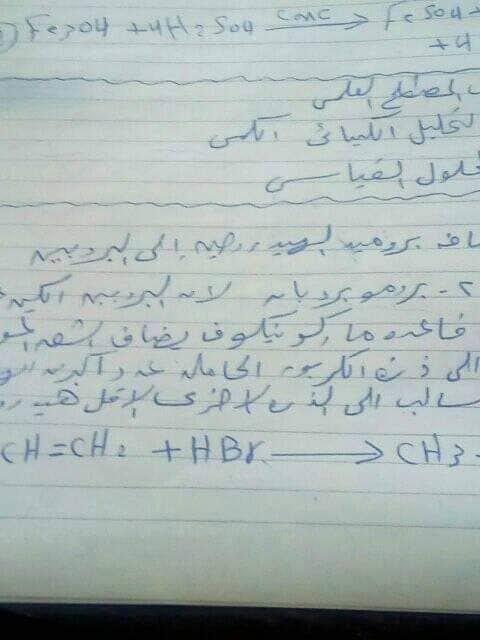 Fe3O4 + 4H2SO4 conc → FeSO4 +
+4
المصطلح العلمى
التحليل الكيميائى الكمى
المحلول القياسى
بروميد الهيدروجين الى البروبين
٢- برومو بروبان لانه البروبين
قاعده ماركونيكوف يضاف الشق
الى ذرة الكربون الحامله عدد اكبر من
سالب الى الاخرى الاقل هيدر
CH=CH2 + HBr → CH3-